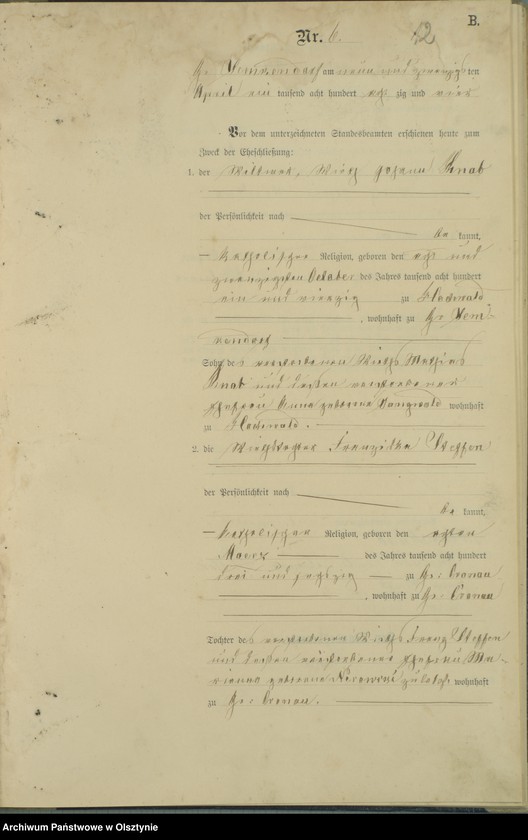 B.
Nr. 6.
12
Gr. Lemkendorf am neun und zwanzigsten
April ein tausend acht hundert acht zig und vier
Vor dem unterzeichneten Standesbeamten erschienen heute zum
Zweck der Eheschließung:
1. der Wittwer, Wirth Johann Knab
der Persönlichkeit nach
be kannt,
katholischer Religion, geboren den acht und
zwanzigsten October des Jahres tausend acht hundert
ein und vierzig zu Fleming
, wohnhaft zu Gr. Lem-
kendorf
Sohn des verstorbenen Wirths Mathias
Knab und dessen verstorbenen
Ehefrau Anna geborene wohnhaft
zu
2. die Wirthstochter Franziska Steffen
der Persönlichkeit nach
be kannt,
katholischer Religion, geboren den achten
Maerz des Jahres tausend acht hundert
drei und sechszig zu Gr. Cronau
, wohnhaft zu Gr. Cronau
Tochter des verstorbenen Wirths Franz Steffen
und dessen verstorbener Ehefrau Ma-
rianna geborene zuletzt wohnhaft
zu Gr. Cronau.
Archiwum Państwowe w Olsztynie